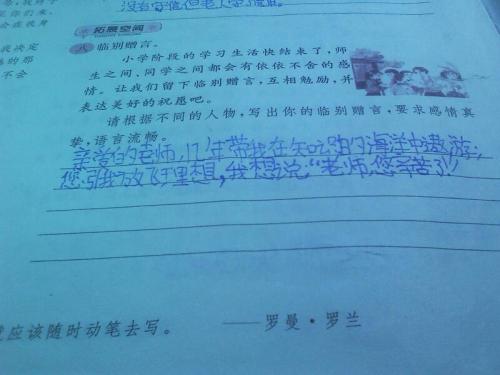 没有
但老人
我决定
的那
不会
拓展空间
八 临别赠言。
小学阶段的学习生活快结束了，师
生之间、同学之间都会有依依不舍的感
情。让我们留下临别赠言，互相勉励，并
表达美好的祝愿吧。
请根据不同的人物，写出你的临别赠言，要求感情真
挚，语言流畅。
亲爱的老师，年带我在知识的海洋中遨游；
您引我放飞理想，我想说“老师，您辛苦了！”
应该随时动笔去写。 ——罗曼·罗兰